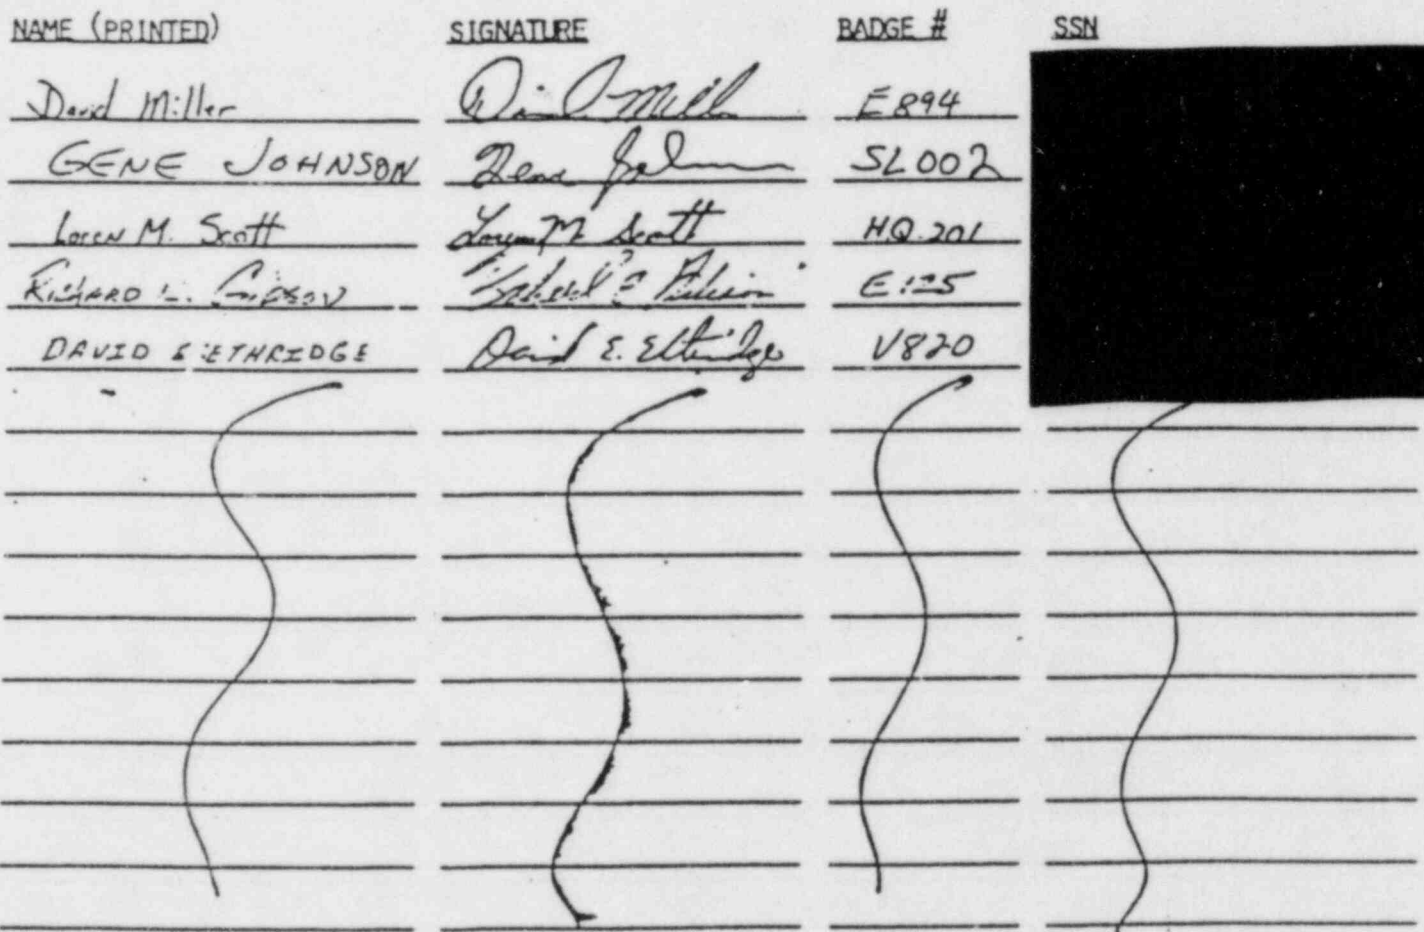 NAME (PRINTED) SIGNATURE BADGE # SSN
David Miller David Miller E894
GENE JOHNSON Gene Johnson SL002
Loren M. Scott Loren M Scott HQ.201
RICHARD L. GIBSON
DAVID E ETHRIDGE David E. Ethridge V820